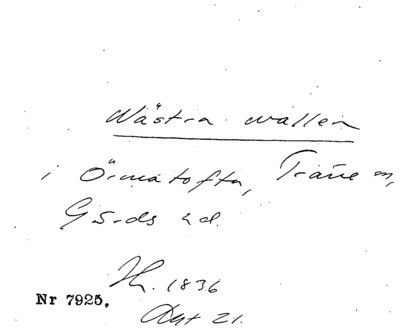 Wästra vallen
i Örmatofta, Träne sn,
G ds hd.
Hh. 1836
Nr 7925.
Akt 21.